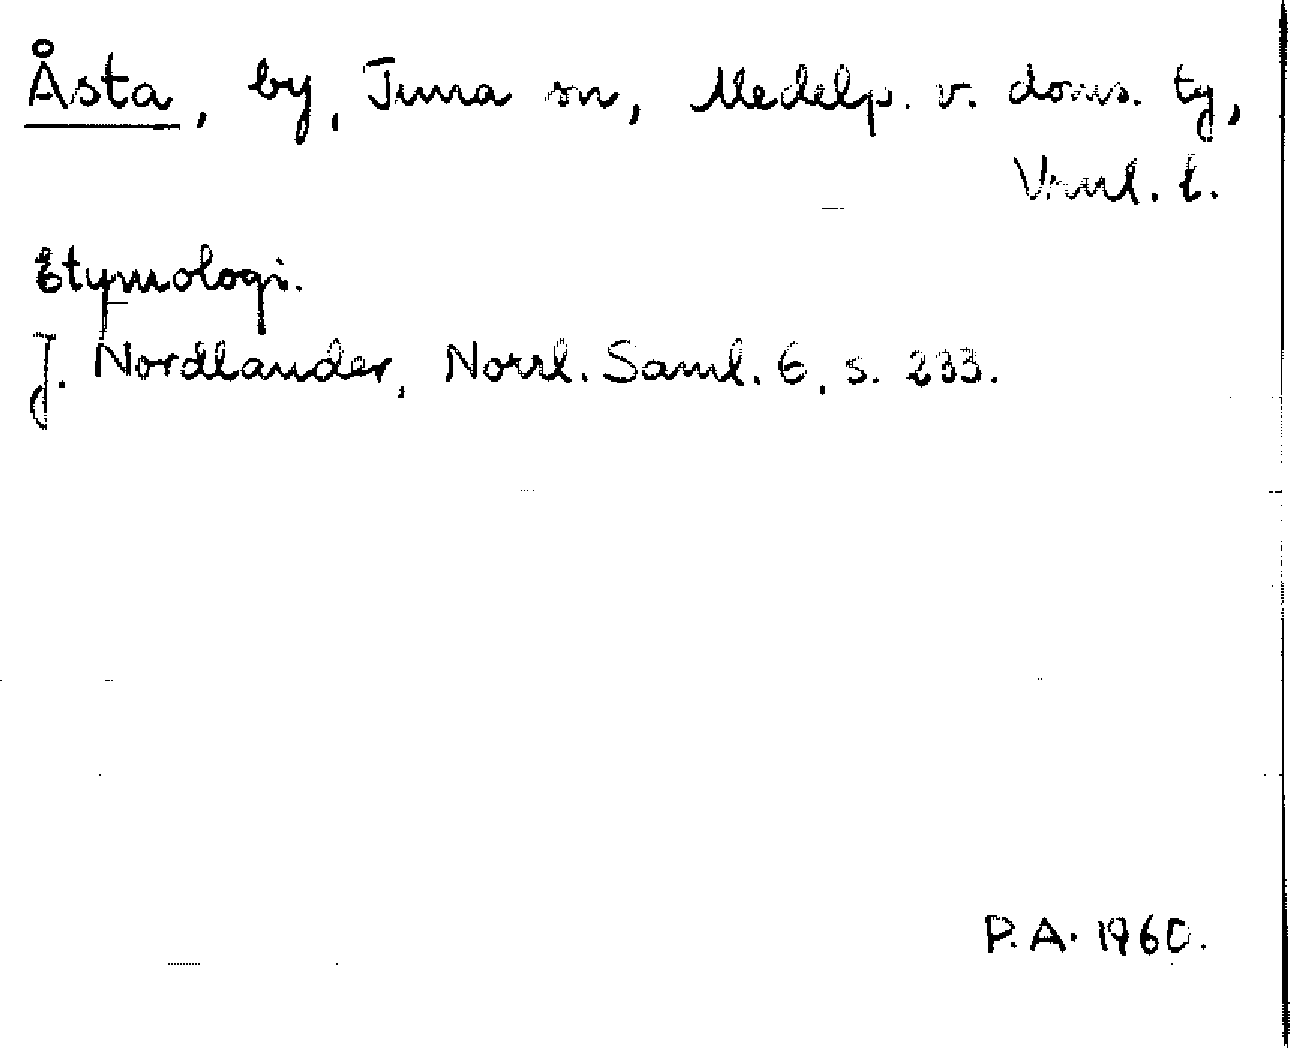 Åsta, by, Tuna sn, Medelp. v. doms. tg,
Vnrl. l.
Etymologi.
J. Nordlander, Norrl. Saml. 6, s. 233.
P.A. 1960.